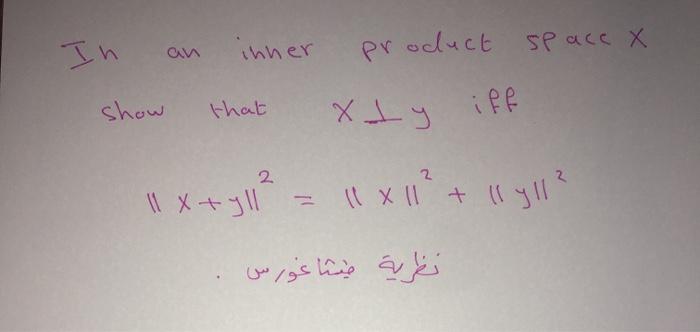 In an inner product space X
show that x ⊥ y iff
|| x + y ||² = || x ||² + || y ||²
نظرية فيثاغورس .